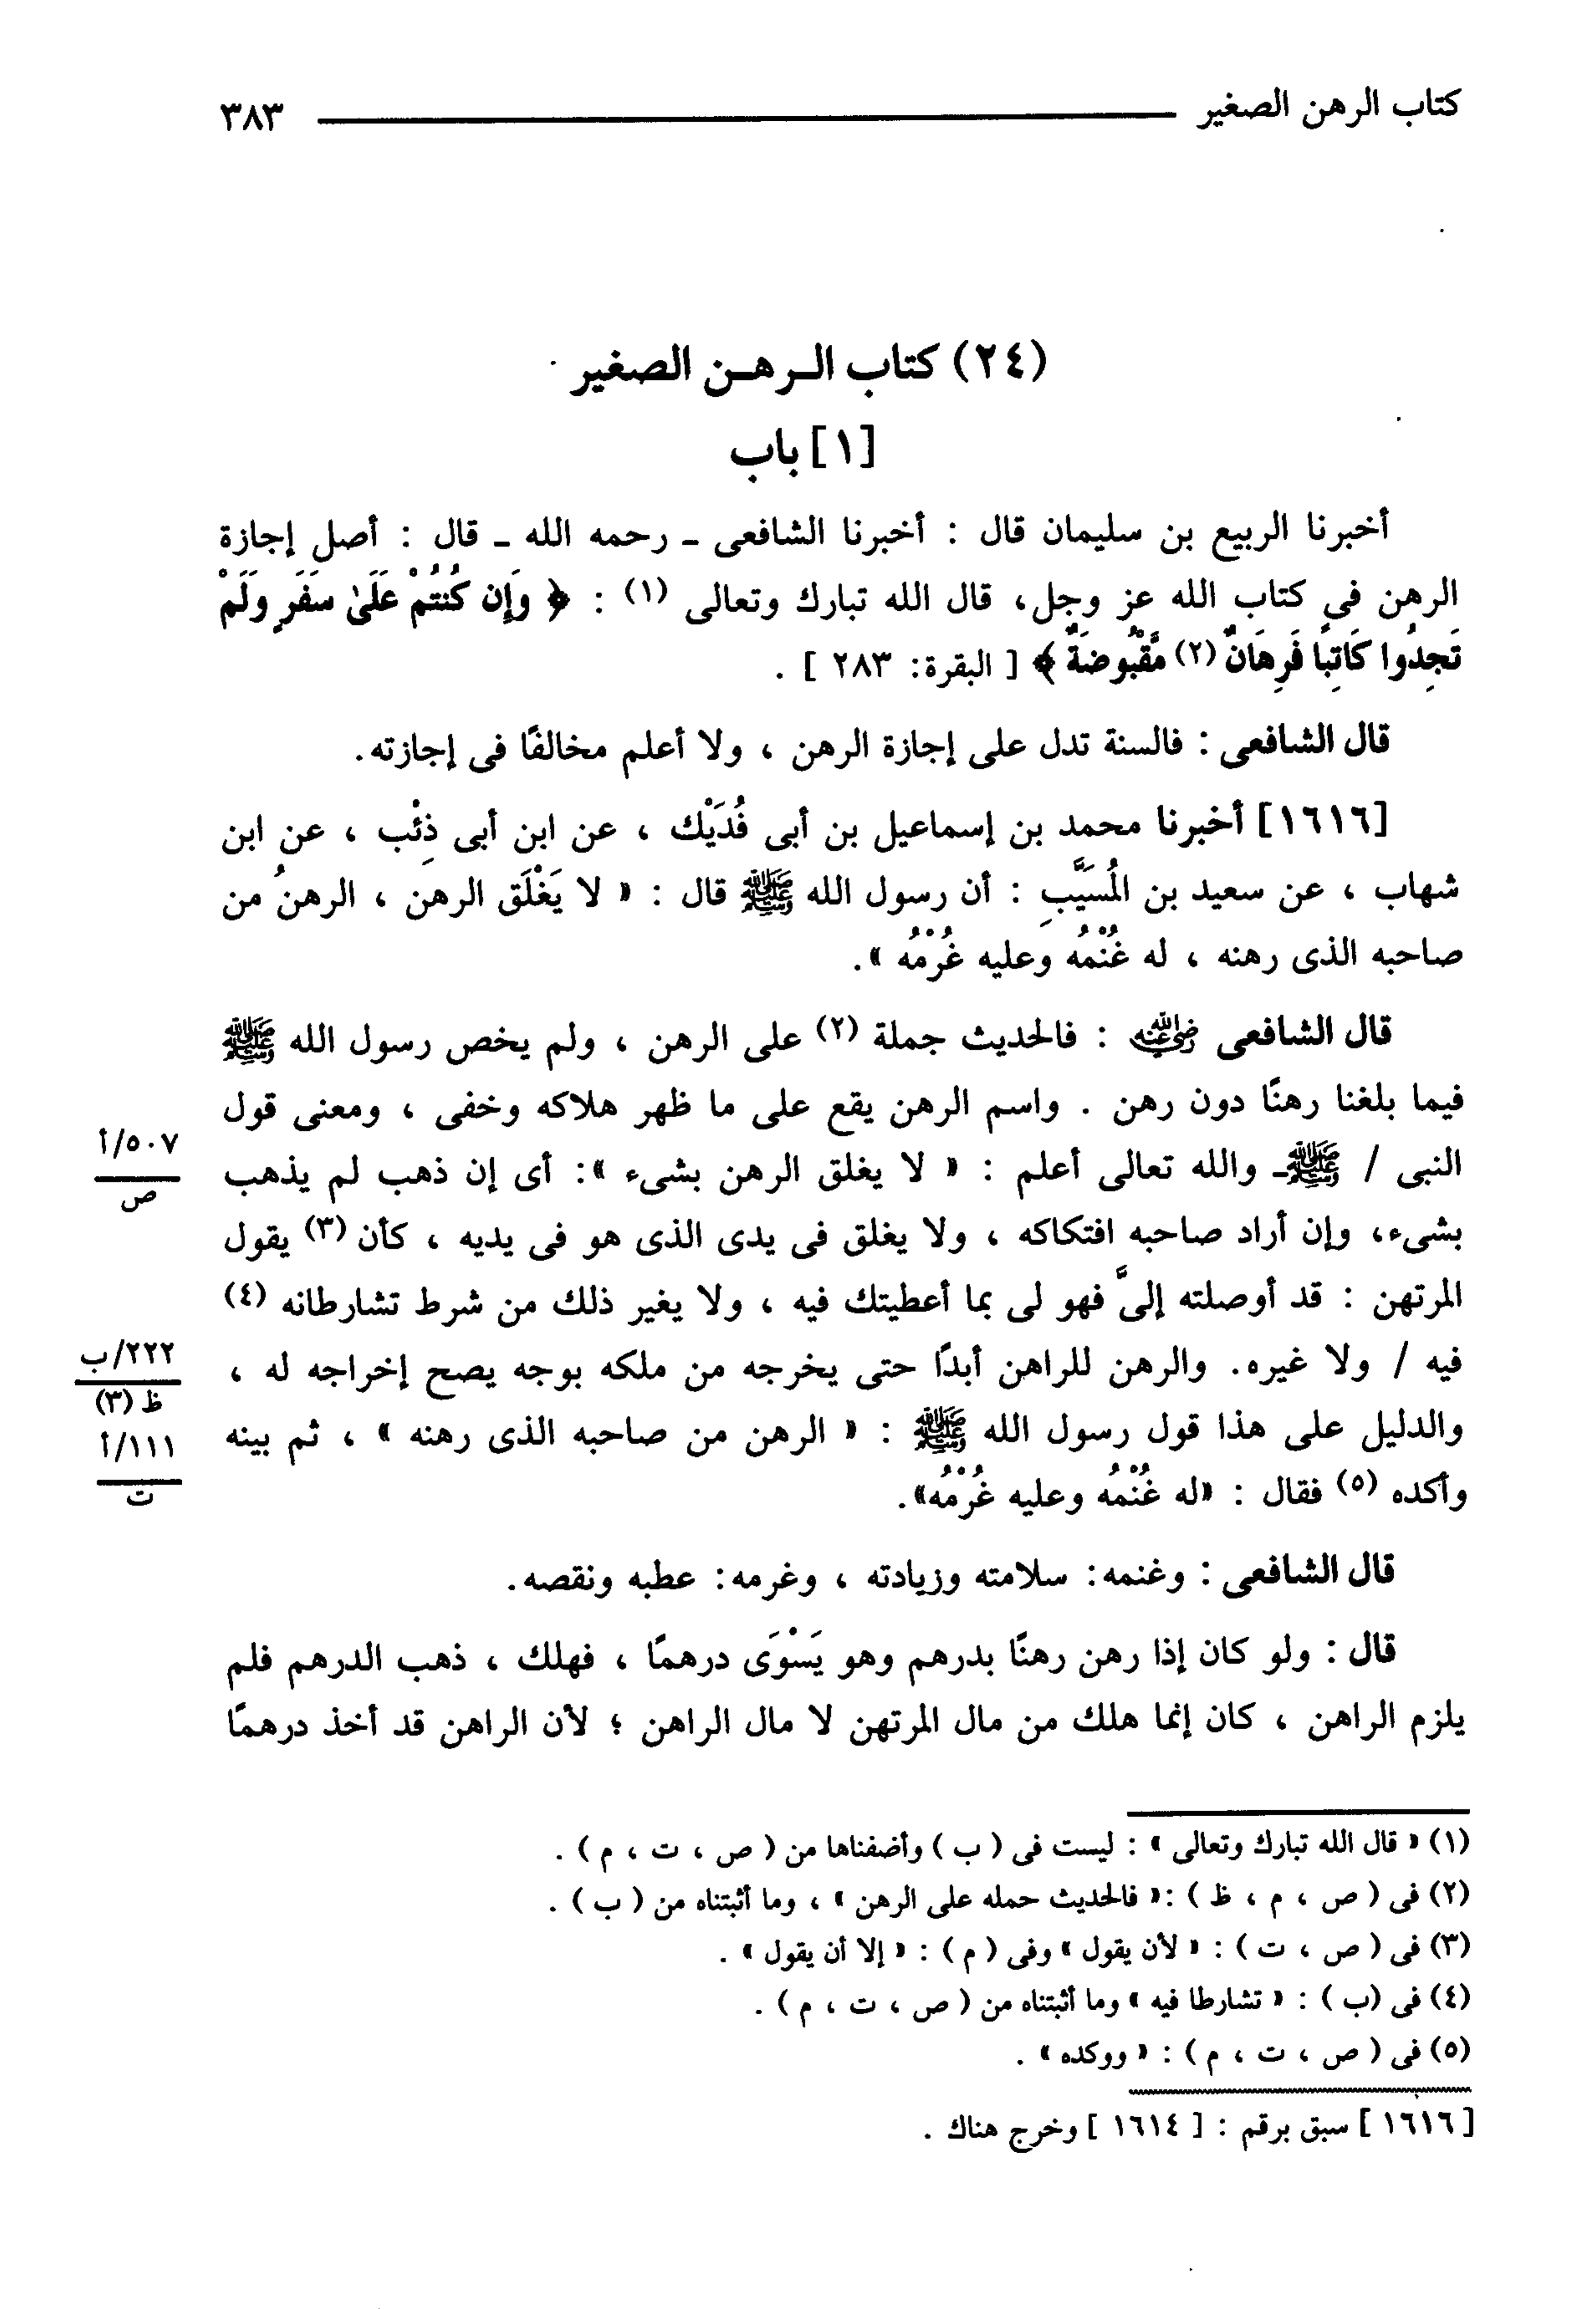 كتاب الرهن الصغير ٣٨٣
(٢٤) كتاب الـرهـن الصغير
[١] باب
أخبرنا الربيع بن سليمان قال : أخبرنا الشافعى ـ رحمه الله ـ قال : أصل إجازة
الرهن فى كتاب الله عز وجل، قال الله تبارك وتعالى (١) : ﴿ وَإِن كُنتُمْ عَلَىٰ سَفَرٍ وَلَمْ
تَجِدُوا كَاتِبًا فَرِهَانٌ (٢) مَّقْبُوضَةٌ ﴾ [ البقرة: ٢٨٣ ] .
قال الشافعى : فالسنة تدل على إجازة الرهن ، ولا أعلم مخالفًا فى إجازته.
[١٦١٦] أخبرنا محمد بن إسماعيل بن أبى فُدَيْك ، عن ابن أبى ذِئْب ، عن ابن
شهاب ، عن سعيد بن المُسَيَّبِ : أن رسول الله ﷺ قال : « لا يَغْلَق الرهن ، الرهنُ من
صاحبه الذى رهنه ، له غُنْمُه وعليه غُرْمُه ».
قال الشافعى رضي الله عنه : فالحديث جملة (٢) على الرهن ، ولم يخص رسول الله ﷺ
فيما بلغنا رهنًا دون رهن . واسم الرهن يقع على ما ظهر هلاكه وخفى ، ومعنى قول
النبى / ﷺـ والله تعالى أعلم : « لا يغلق الرهن بشىء »: أى إن ذهب لم يذهب
٥٠٧/أ
ص
بشىء، وإن أراد صاحبه افتكاكه ، ولا يغلق فى يدى الذى هو فى يديه ، كأن (٣) يقول
المرتهن : قد أوصلته إلىَّ فهو لى بما أعطيتك فيه ، ولا يغير ذلك من شرط تشارطانه (٤)
فيه / ولا غيره. والرهن للراهن أبدًا حتى يخرجه من ملكه بوجه يصح إخراجه له ،
٢٢٢/ب
ظ (٣)
والدليل على هذا قول رسول الله ﷺ : « الرهن من صاحبه الذى رهنه » ، ثم بينه
١١١/أ
ت
وأكده (٥) فقال : «له غُنْمُه وعليه غُرْمُه».
قال الشافعى : وغنمه: سلامته وزيادته ، وغرمه: عطبه ونقصه.
قال : ولو كان إذا رهن رهنًا بدرهم وهو يَسْوَى درهمًا ، فهلك ، ذهب الدرهم فلم
يلزم الراهن ، كان إنما هلك من مال المرتهن لا مال الراهن ؛ لأن الراهن قد أخذ درهمًا
(١) « قال الله تبارك وتعالى » : ليست فى ( ب ) وأضفناها من ( ص ، ت ، م ) .
(٢) فى ( ص ، م ، ظ ) :« فالحديث حمله على الرهن » ، وما أثبتناه من ( ب ) .
(٣) فى ( ص ، ت ) : « لأن يقول » وفى ( م ) : « إلا أن يقول » .
(٤) فى (ب ) : « تشارطا فيه » وما أثبتناه من ( ص ، ت ، م ) .
(٥) فى ( ص ، ت ، م ) : « ووكده » .
[ ١٦١٦ ] سبق برقم : [ ١٦١٤ ] وخرج هناك .